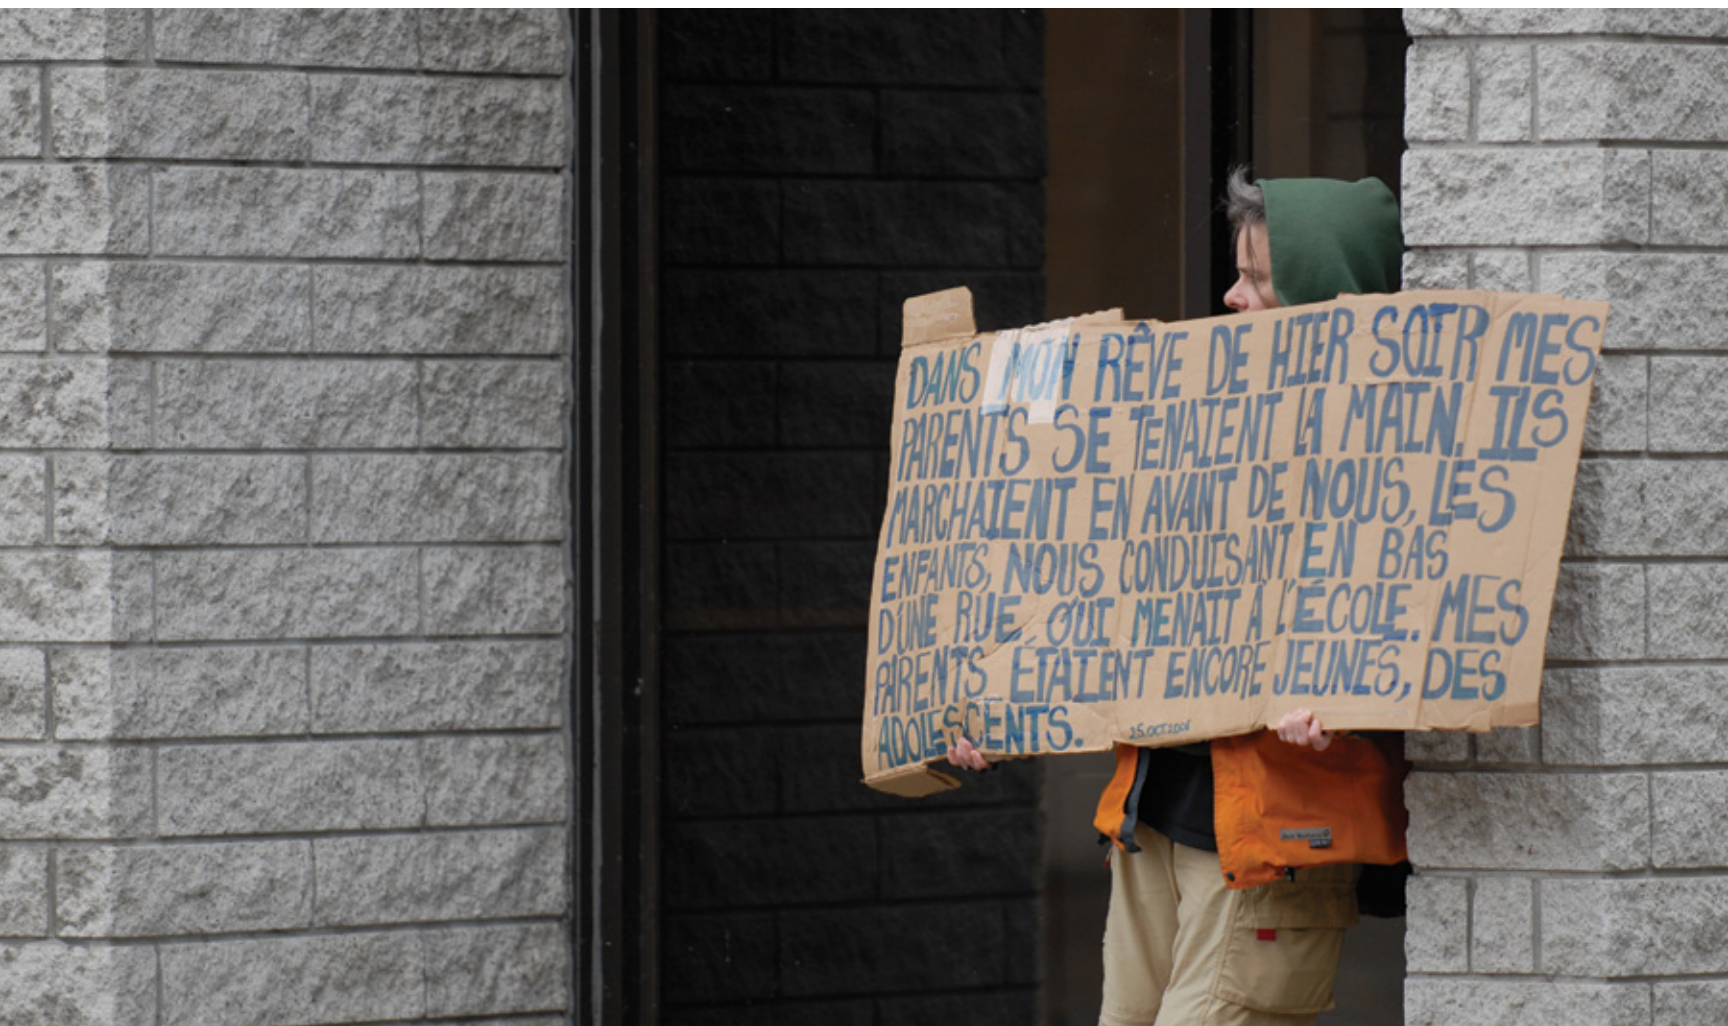 DANS MON RÊVE DE HIER SOIR MES
PARENTS SE TENAIENT LA MAIN. ILS
MARCHAIENT EN AVANT DE NOUS, LES
ENFANTS, NOUS CONDUISANT EN BAS
D'UNE RUE, QUI MENAIT À L'ÉCOLE. MES
PARENTS ÉTAIENT ENCORE JEUNES, DES
ADOLESCENTS.
25.OCT